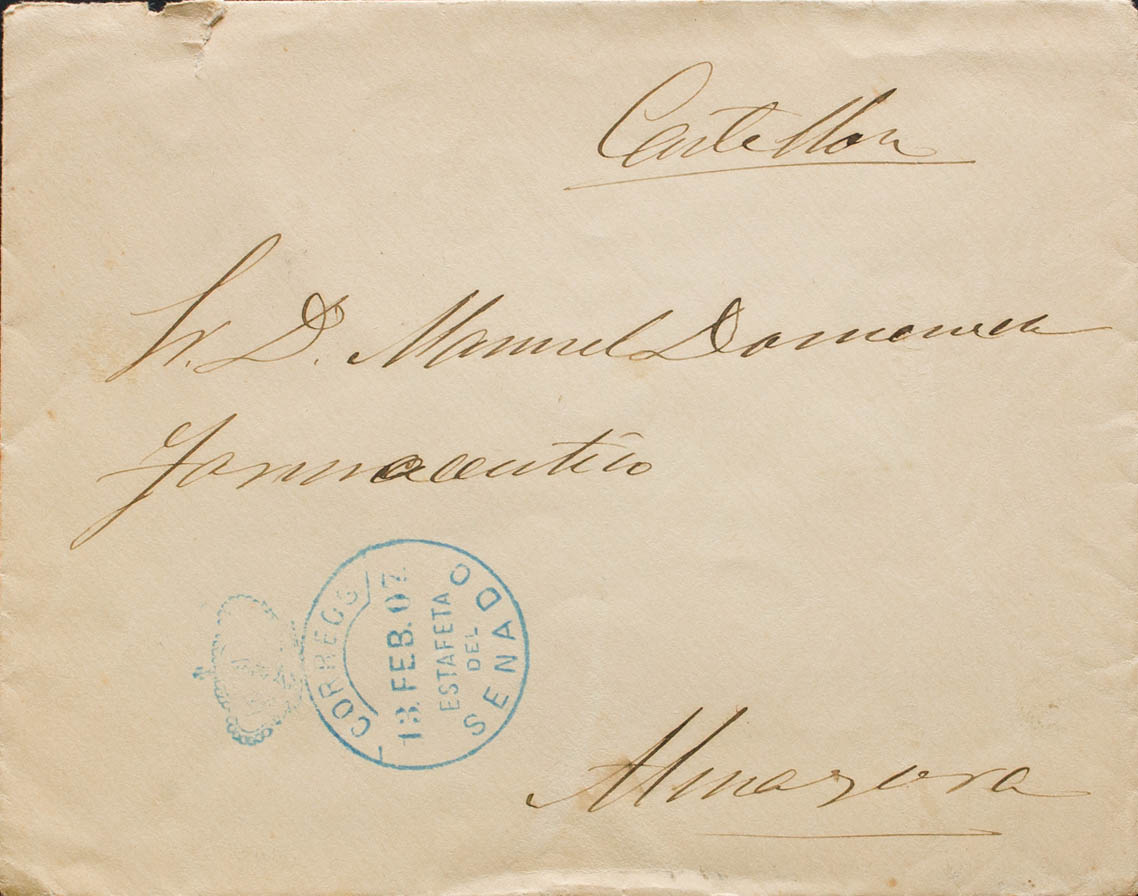 Castellon
Sr. D. Manuel Domenech
Farmaceutico
CORREOS
13.FEB.07.
ESTAFETA
DEL
SENADO
Almazora